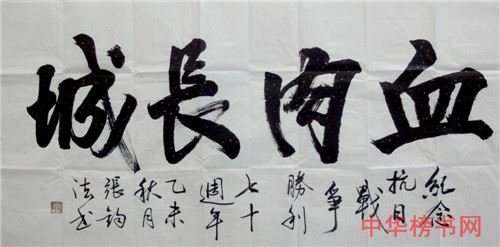 血肉長城
紀念
抗日
戰
爭
勝利
七十
週年
乙未
秋月
張鈞
法书
中华榜书网